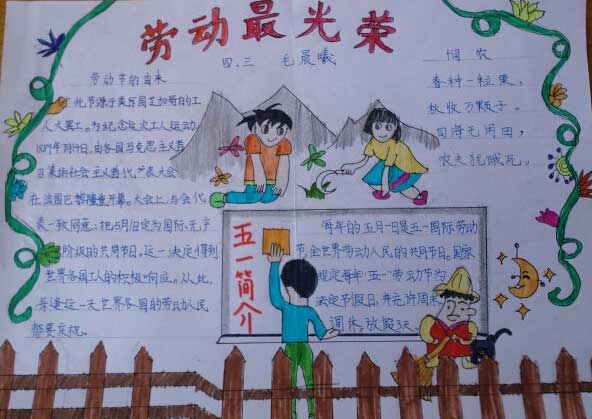 劳动最光荣
四.三 毛晨曦
劳动节的由来
五一节源于美国芝加哥的工
人大罢工。为纪念这次工人运动,
1889年7月14日,由各国马克思主义者
召集的社会主义者代表大会
在法国巴黎隆重开幕。大会上,与会代
表一致同意:把5月1日定为国际无产
阶级的共同节日。这一决定得到
世界各国工人的积极响应。从此,
每逢这一天世界各国的劳动人民
都要庆祝。
悯农
春种一粒粟,
秋收万颗子。
四海无闲田,
农夫犹饿死。
五一简介
每年的五月一日是五一国际劳动
节,全世界劳动人民的共同节日。国家
规定每年"五一"劳动节为
法定节假日,并允许周末
调休,放假3天。